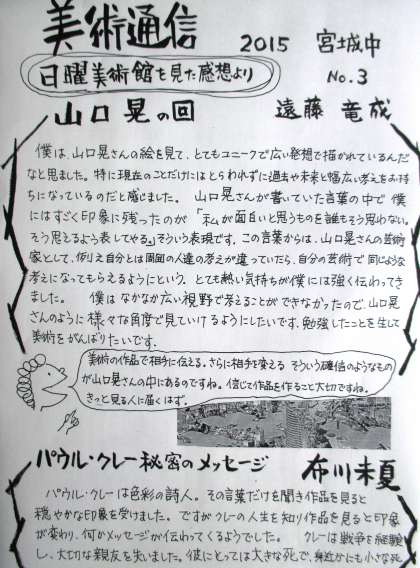 美術通信
2015 宮城中
日曜美術館を見た感想より
No.3
山口晃の回
遠藤 竜成
僕は、山口晃さんの絵を見て、とてもユニークで広い発想で描かれているんだ
なと思ました。特に現在のことだけにはとらわれずに過去や未来と幅広い考えをお持
ちになっているのだと感じました。 山口晃さんが書いていた言葉の中で 僕
にはすごく印象に残ったのが「私が面白いと思うものを誰もそう思わない。
そう思えるよう表してやる。」そういう表現です。この言葉からは、山口晃さんの芸術
家として、例え自分とは周囲の人達の考えが違っていたら、自分の芸術で同じような
考えになってもらえるようにという、とても熱い気持ちが僕には強く伝わってき
ました。 僕はなかなか広い視野で考えることができなかったので、山口晃
さんのように様々な角度で見ていけるようにしたいです。勉強したことを生して
美術をがんばりたいです。
美術の作品で相手に伝える。さらに相手を変える そういう確信のようなもの
が山口晃さんの中にあるのですね。信じて作品を作ること大切ですね。
きっと見る人に届くはず。
パウル・クレー秘密のメッセージ
布川未夏
パウル・クレーは色彩の詩人。その言葉だけを聞き作品を見ると
穏やかな印象を受けました。ですがクレーの人生を知り作品を見ると印象
が変わり、何かメッセージが伝わってくるようでした。 クレーは戦争を経験
し、大切な親友を失いました。彼にとっては大きな死で、身近かにも小さな死